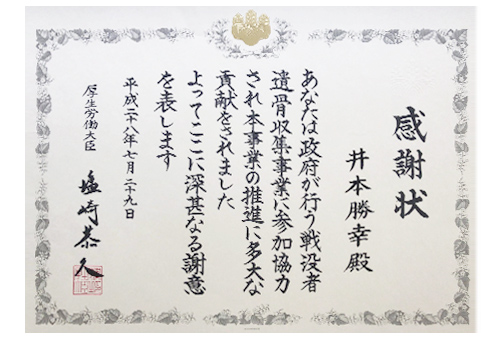 感謝状
井本勝幸殿
あなたは政府が行う戦没者
遺骨収集事業に参加協力
され本事業の推進に多大な
貢献をされました
よってここに深甚なる謝意
を表します
平成二十八年七月二十九日
厚生労働大臣
塩崎恭久